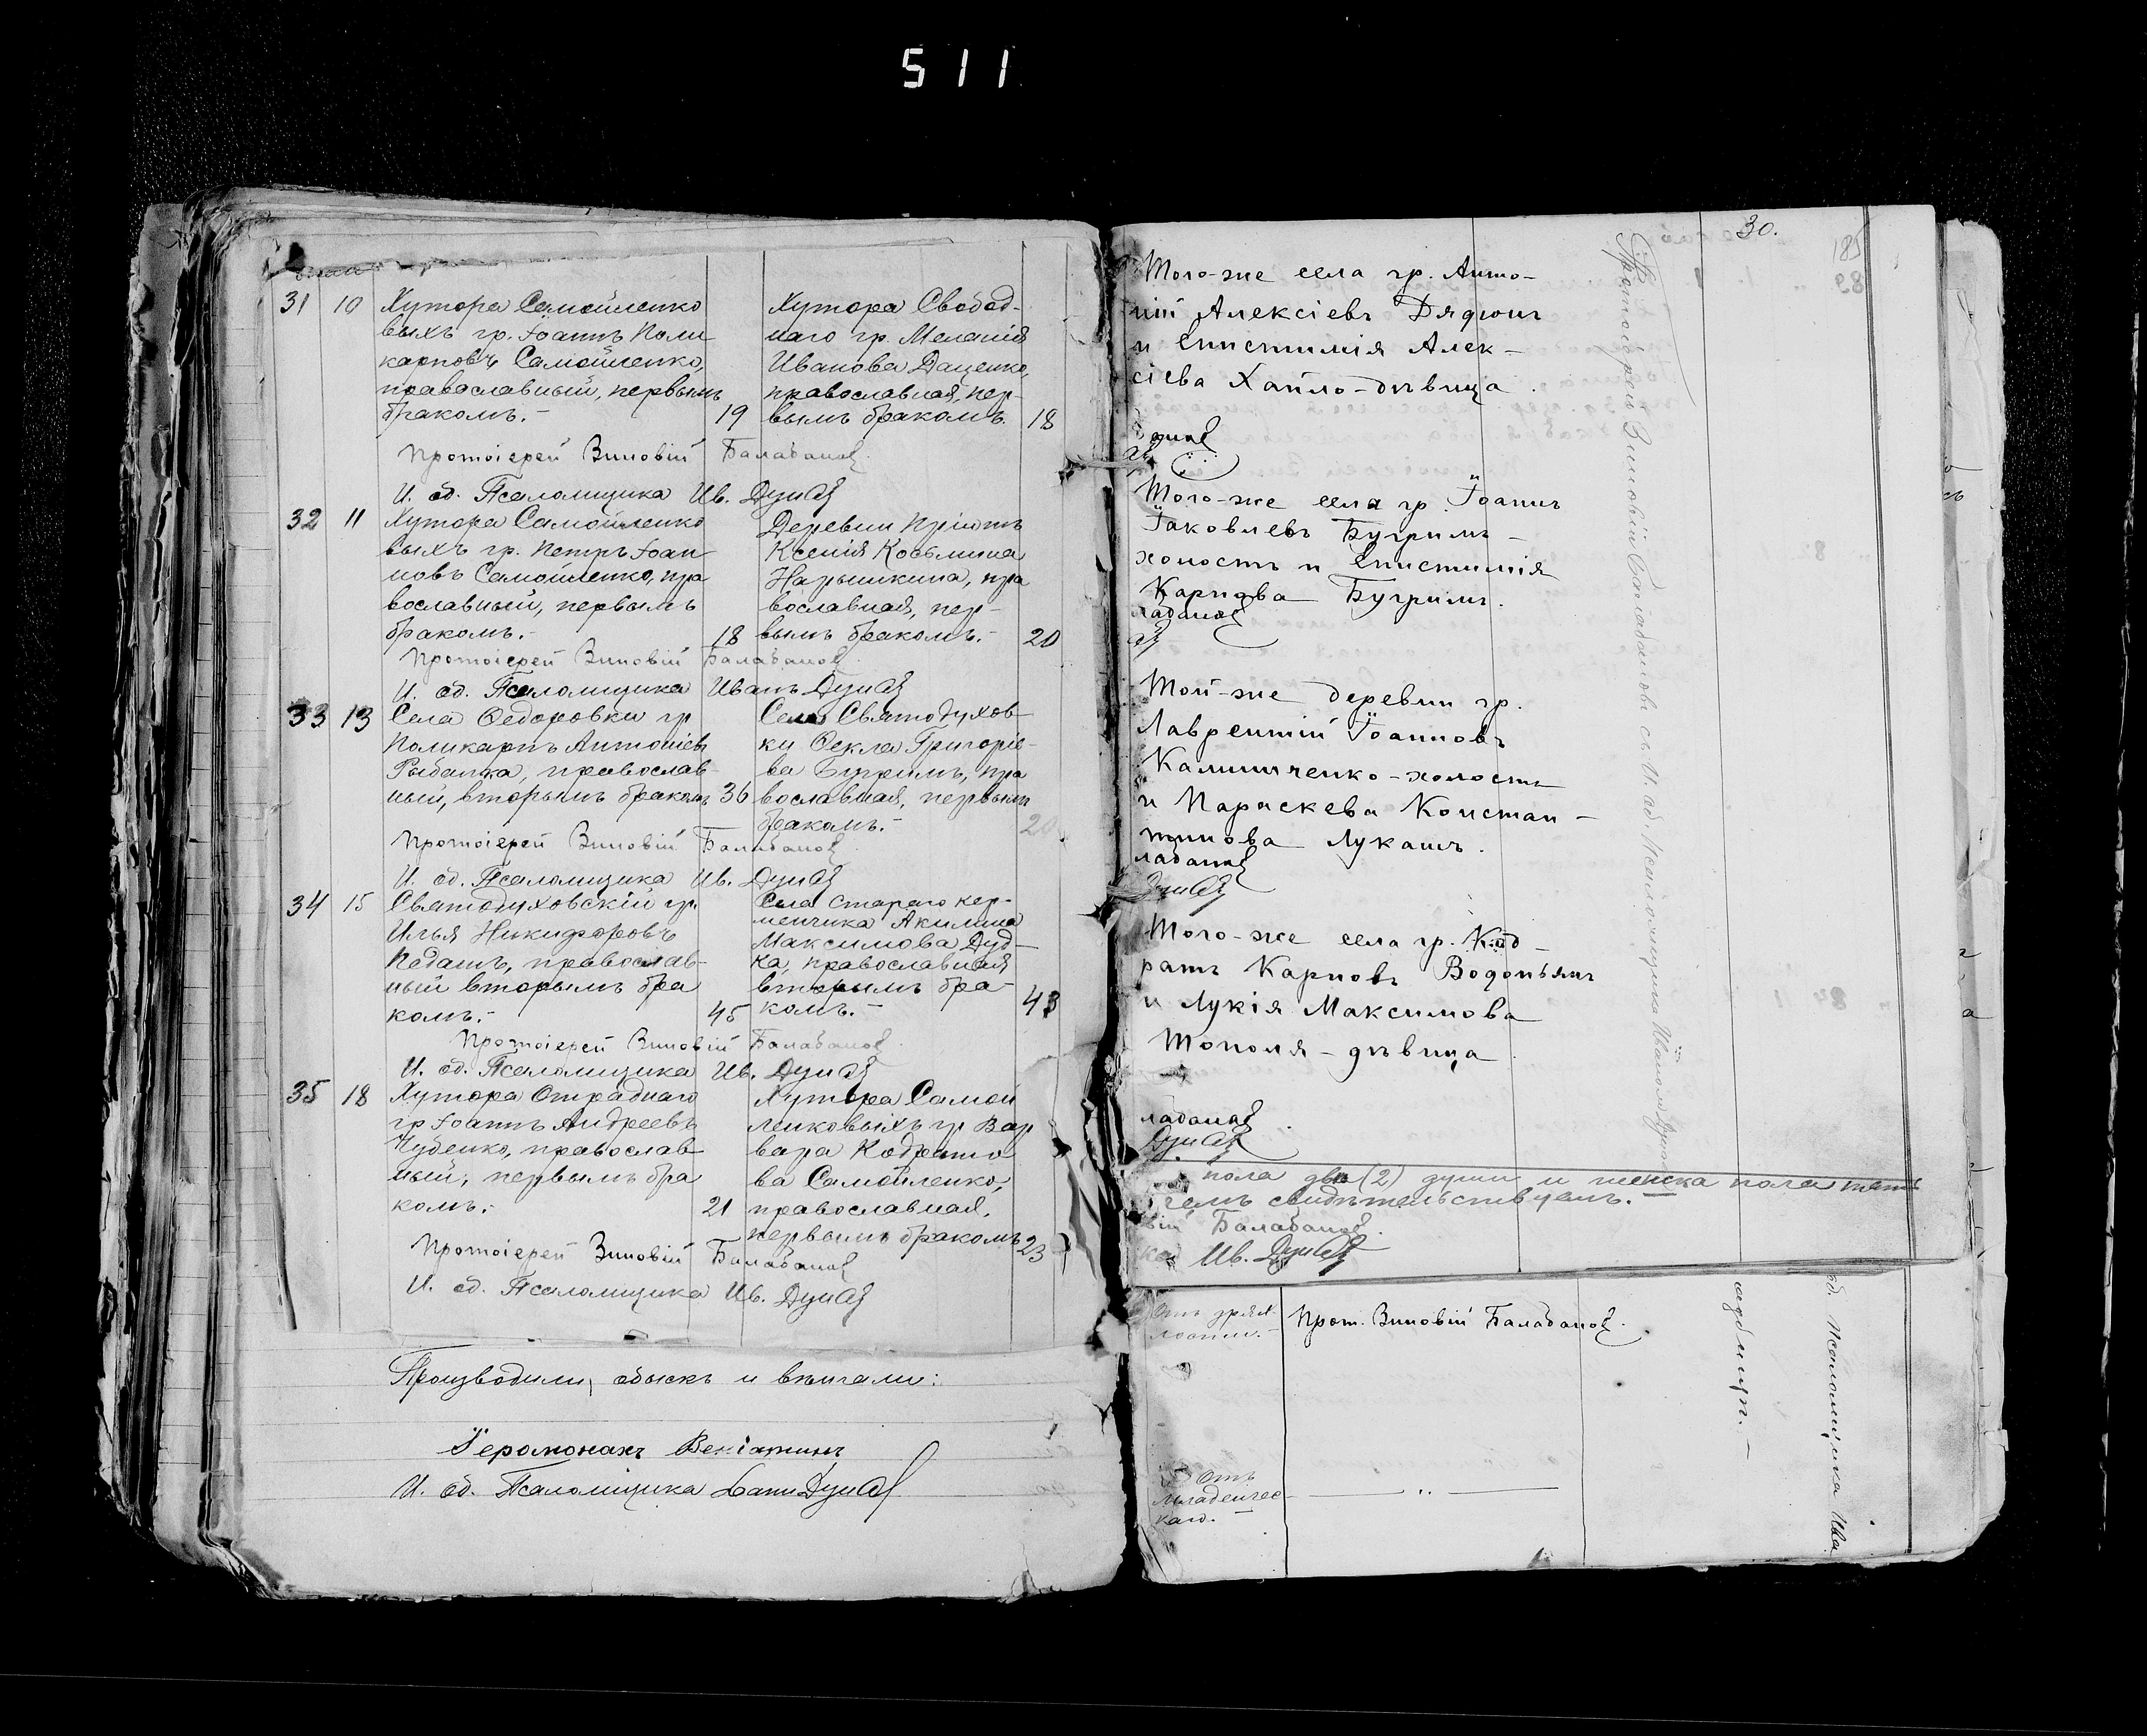 511
31 10 Хутора Самойленко
выхъ гр. Іоаннъ Поли
карповъ Самойленко,
православный, первымъ
бракомъ.- 19
Хутора Свобод-
наго гр. Меланія
Иванова Даценко,
православная, пер-
вымъ бракомъ. 18
Протоіерей Зиновій Балабанов
И. об. Псаломщика Ив.
32 11 Хутора Самойленко
выхъ гр. Петръ Іоан
новъ Самойленко, пра
вославный, первымъ
бракомъ.- 18
Деревни Пріютъ
Ксенія Косьмина
Нарышкина, пра
вославная, пер-
вымъ бракомъ.- 20
Протоіерей Зиновій Балабанов
И. об. Псаломщика Иванъ
33 13 Села Ѳедоровки гр
Поликарпъ Антоніевъ
Рыбалка, православ-
ный, вторымъ бракомъ 36
Села Святодухов-
ки Ѳекла Григоріе-
ва Бугримъ, пра
вославная, первымъ
бракомъ.- 20
Протоіерей Зиновій Балабанов
И. об. Псаломщика Ив.
34 15 Святодуховскій гр.
Илья Никифоровъ
Педашъ, православ-
ный вторымъ бра
комъ.- 45
Села Стараго Кер-
менчика Акилина
Максимова Дуд-
ка, православная
вторымъ бра-
комъ.- 43
Протоіерей Зиновій Балабанов
И. об. Псаломщика Ив.
35 18 Хутора Отраднаго
гр Іоаннъ Андреевъ
Чубенко, православ-
ный, первымъ бра
комъ.- 21
Хутора Самой
ленковыхъ гр Вар
вара Кодрато
ва Самойленко,
православная,
первымъ бракомъ 23
Протоіерей Зиновій Балабанов
И. об. Псаломщика Ив.
Производили обыскъ и вѣнчали:
Іеромонахъ Веніаминъ
И. об. Псаломщика
30.
185
89
Того-же села гр. Анто-
ній Алексіевъ Дядюнъ
и Епистимія Алек-
сіева Хайло-дѣвица
Того-же села гр. Іоаннъ
Іаковлевъ Бугримъ -
холостъ и Епистимія
Карпова Бугримъ.
лабанов
Той-же деревни гр.
Лаврентій Іоанновъ
Калиниченко-холостъ
и Параскева Констан-
тинова Лукашъ.
лабанов
Того-же села гр. Код-
ратъ Карповъ Водопьянъ
и Лукія Максимова
Тополя-дѣвица
лабанов
пола два (2) души и женска пола пять
чемъ свидѣтельствуемъ.
вій Балабанов
ка Ив.
Протоіерей Зиновій Балабановъ съ И. об. Псаломщика
Прот. Зиновій Балабанов.
Отъ
младенчес-
каго.
об. Псаломщика Ива